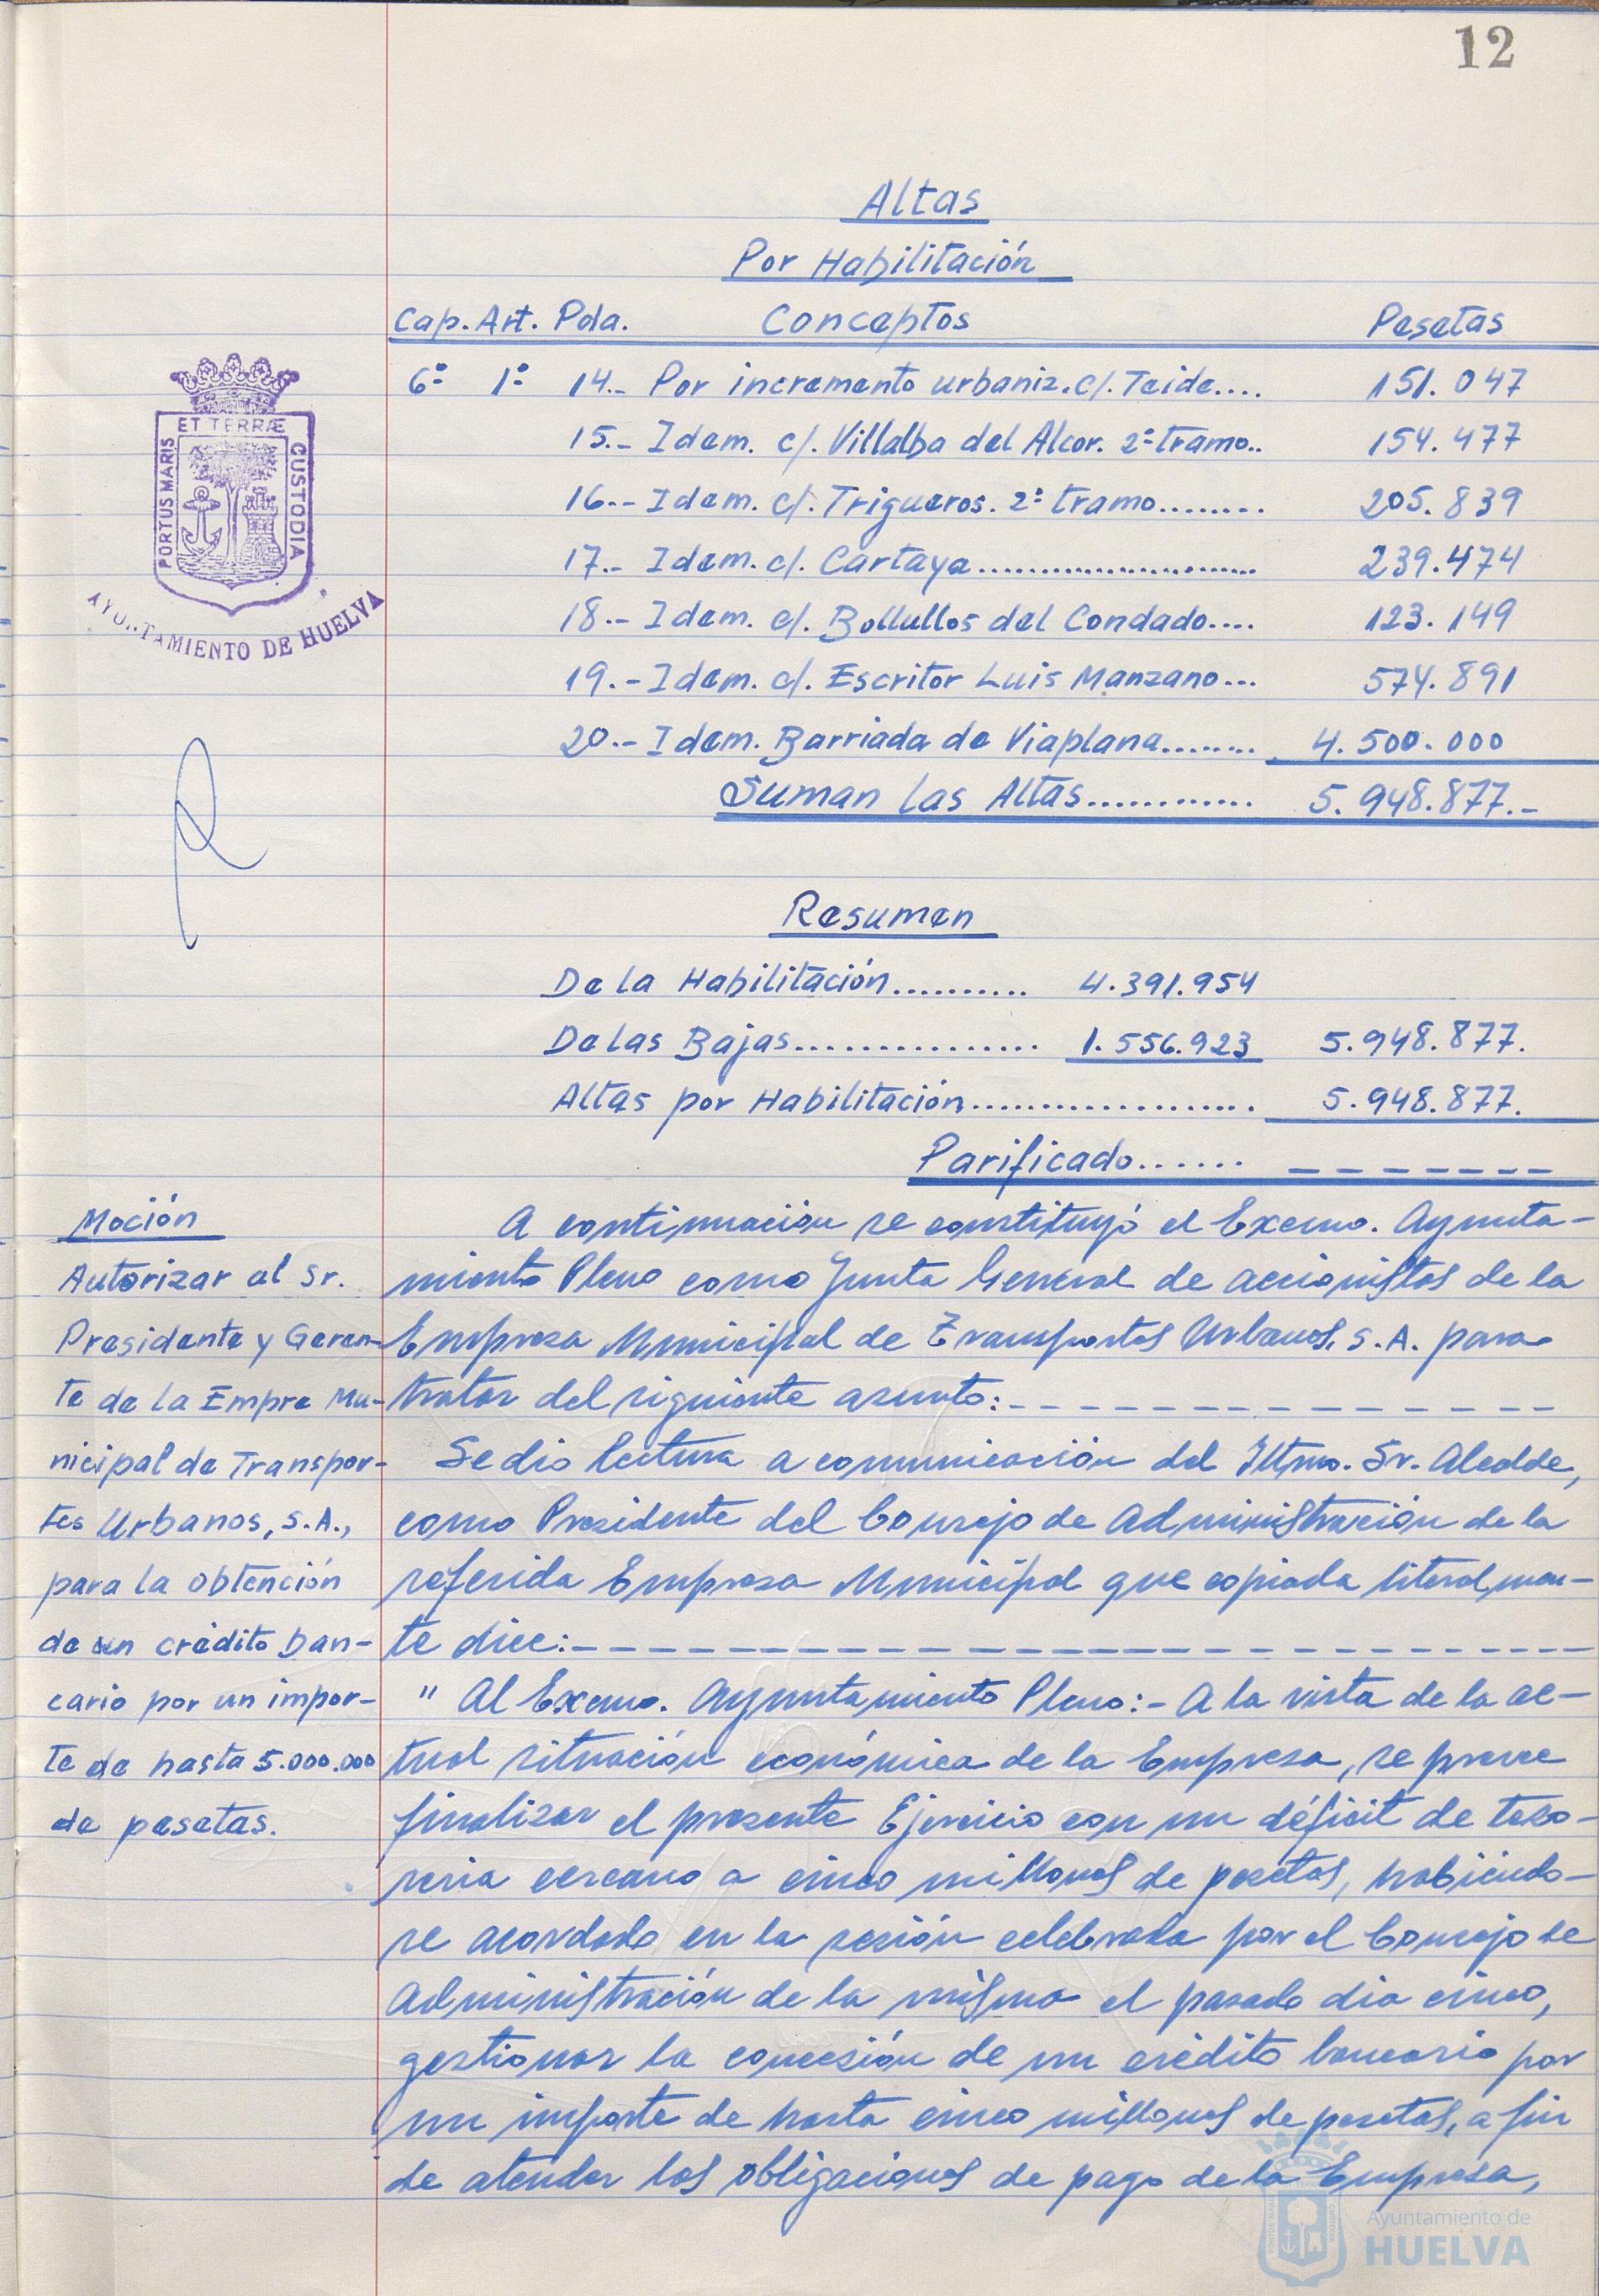 12
Altas
Por Habilitación
Cap. Art. Pda. Conceptos Pesetas
6º 1º 14.- Por incremento urbaniz. c/. Teide.... 151.047
15.- Idem. c/. Villalba del Alcor. 2º tramo.. 154.477
16.- Idem. c/. Trigueros. 2º tramo........ 205.839
17.- Idem. c/. Cartaya........................ 239.474
18.- Idem. c/. Bollullos del Condado.... 123.149
19.- Idem. c/. Escritor Luis Manzano... 574.891
20.- Idem. Barriada de Viaplana........ 4.500.000
Suman las Altas............ 5.948.877.-
PORTUS MARIS ET TERRÆ CUSTODIA
AYUNTAMIENTO DE HUELVA
Resumen
De la Habilitación.......... 4.391.954
De las Bajas................ 1.556.923 5.948.877.
Altas por Habilitación.................... 5.948.877.
Parificado...... _ _ _ _ _ _ _
Moción
Autorizar al Sr.
Presidente y Geren-
te de la Empre Mu-
nicipal de Transpor-
tes Urbanos, S.A.,
para la obtención
de un crédito ban-
cario por un impor-
te de hasta 5.000.000
de pesetas.
A continuación se constituyó el Excmo. Ayunta-
miento Pleno como Junta General de accionistas de la
Empresa Municipal de Transportes Urbanos, S.A. para
tratar del siguiente asunto:- - - - - - - - - - - - - -
Se dio lectura a comunicación del Iltmo. Sr. Alcalde,
como Presidente del Consejo de Administración de la
referida Empresa Municipal que copiada literalmen-
te dice:- - - - - - - - - - - - - - - - - - - - - - - -
" Al Excmo. Ayuntamiento Pleno:- A la vista de la ac-
tual situación económica de la Empresa, se prevee
finalizar el presente Ejercicio con un déficit de teso-
reria cercano a cinco millones de pesetas, habiendo-
se acordado en la sesión celebrada por el Consejo de
Administración de la misma el pasado dia cinco,
gestionar la concesión de un crédito bancario por
un importe de hasta cinco millones de pesetas, a fin
de atender las obligaciones de pago de la Empresa,
Ayuntamiento de
HUELVA